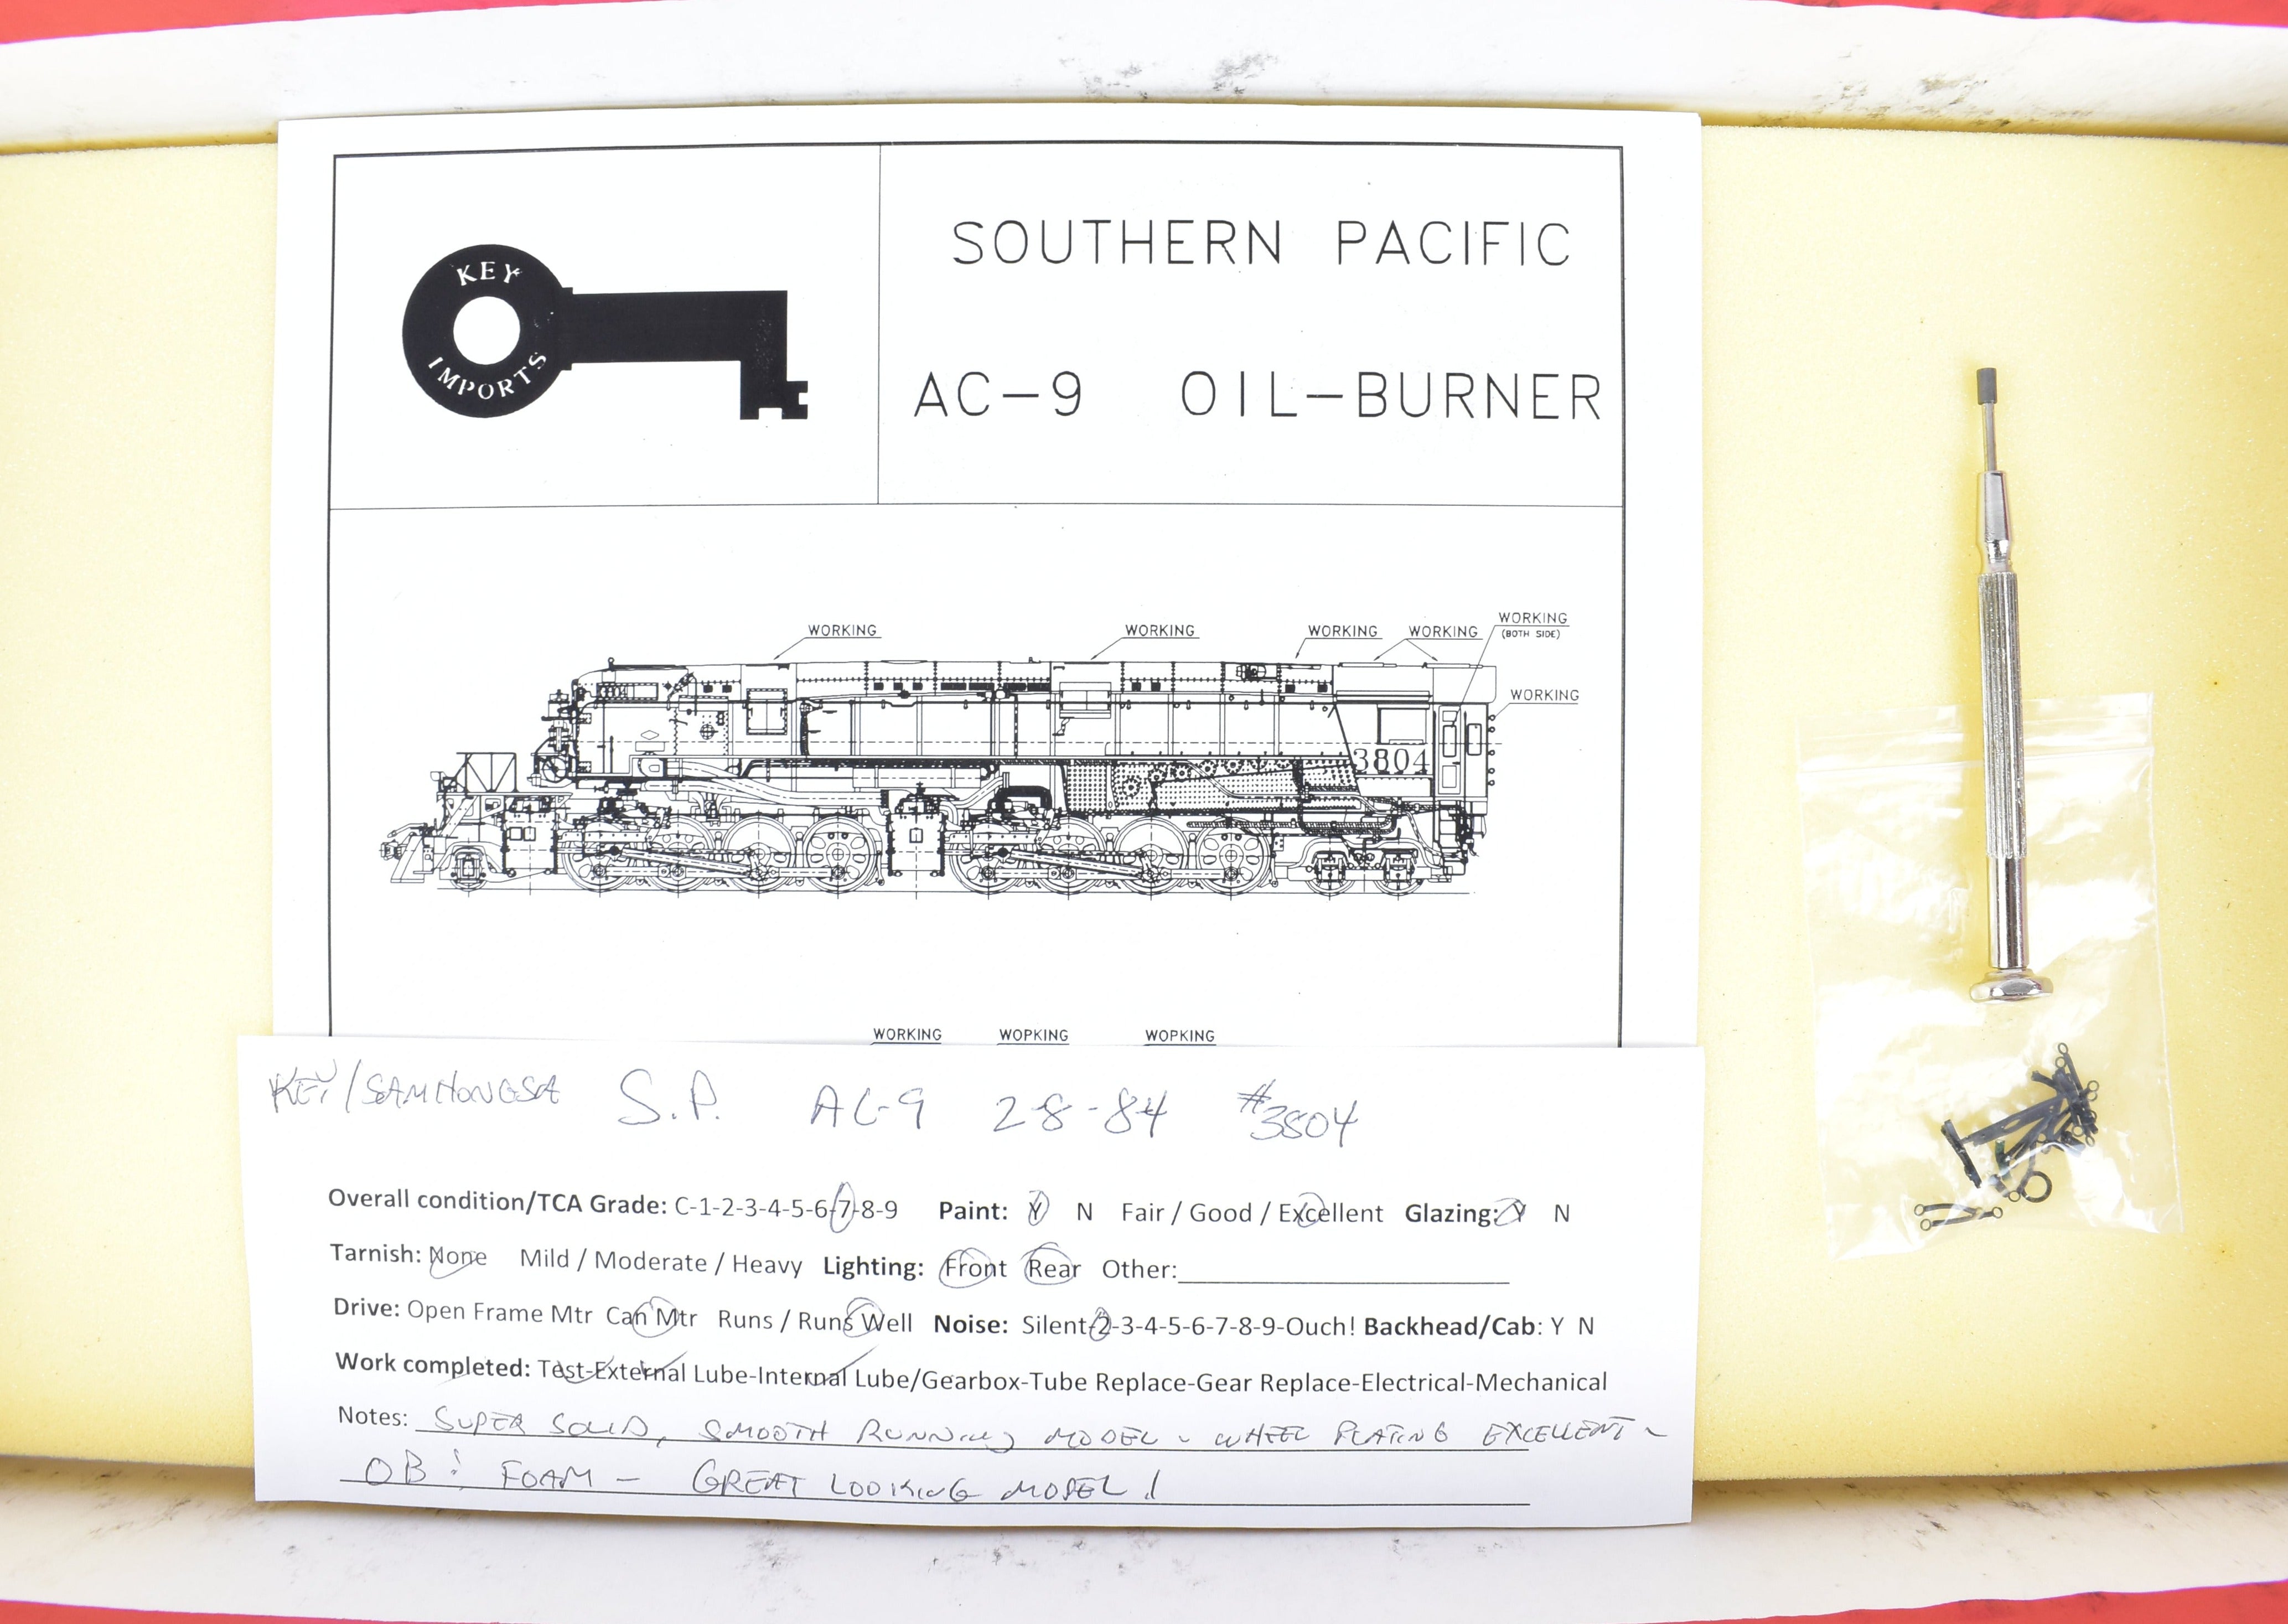 KEY
IMPORTS
SOUTHERN PACIFIC
AC-9 OIL-BURNER
WORKING WORKING WORKING WORKING WORKING
(BOTH SIDE)
WORKING
3804
WORKING WOPKING WOPKING
KEY/SAMHONGSA S.P. AC-9 2-8-84 #3804
Overall condition/TCA Grade: C-1-2-3-4-5-6-7-8-9 Paint: Y N Fair / Good / Excellent Glazing: Y N
Tarnish: None Mild / Moderate / Heavy Lighting: Front Rear Other:
Drive: Open Frame Mtr Can Mtr Runs / Runs Well Noise: Silent-2-3-4-5-6-7-8-9-Ouch! Backhead/Cab: Y N
Work completed: Test-External Lube-Internal Lube/Gearbox-Tube Replace-Gear Replace-Electrical-Mechanical
Notes: SUPER SOLID, SMOOTH RUNNING MODEL - WHEEL PLATING EXCELLENT -
OB: FOAM - GREAT LOOKING MODEL!